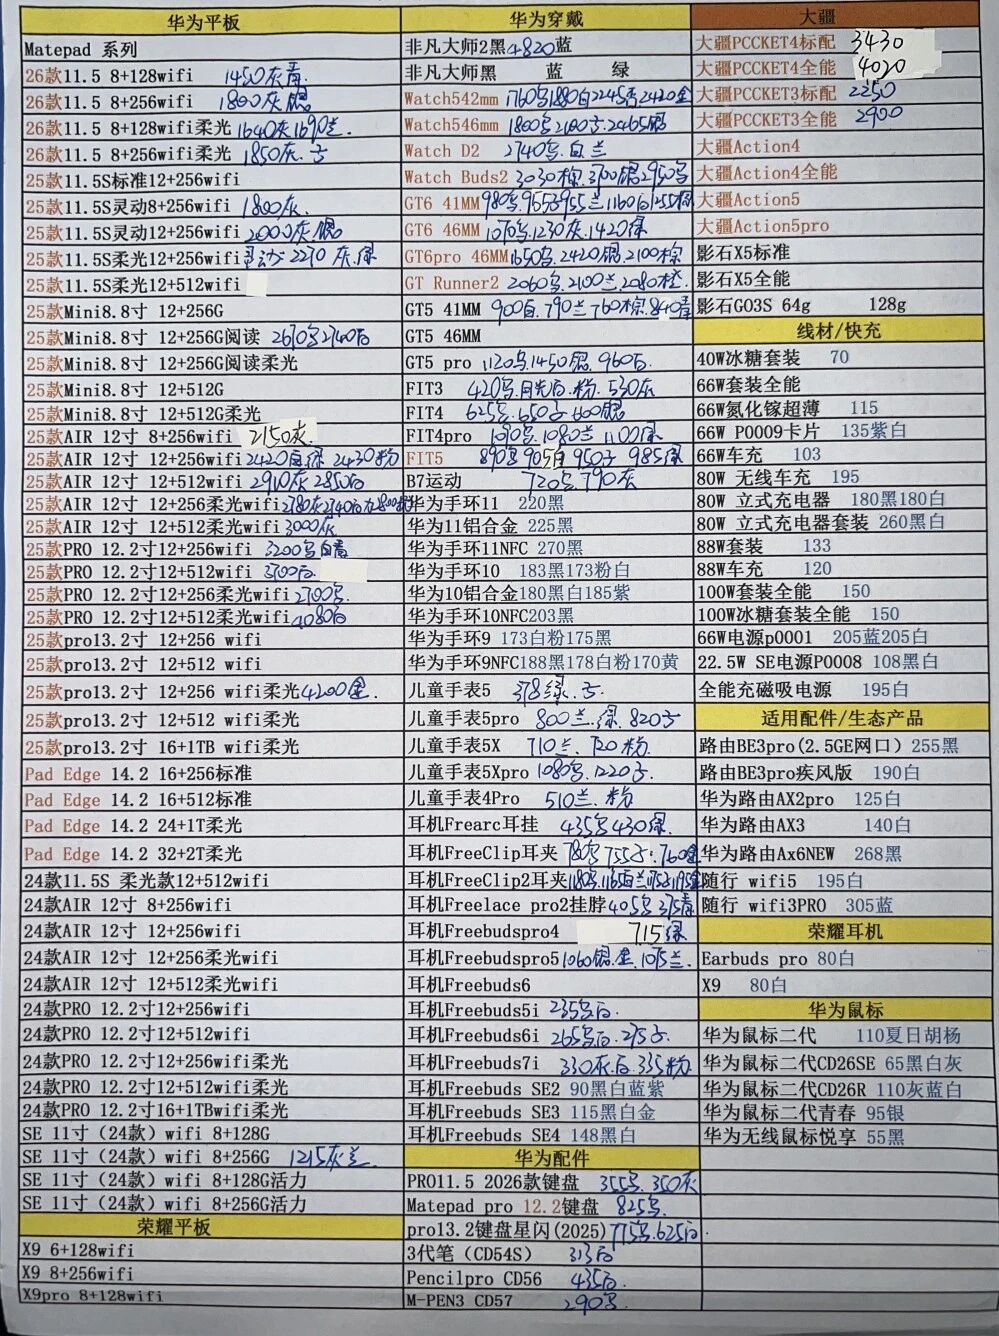 华为平板
Matepad 系列
26款11.5 8+128wifi 1450灰青
26款11.5 8+256wifi 1800灰银
26款11.5 8+128wifi柔光 1640灰1690兰
26款11.5 8+256wifi柔光 1850灰.子
25款11.5S标准12+256wifi
25款11.5S灵动8+256wifi 1800灰
25款11.5S灵动12+256wifi 2000灰银
25款11.5S柔光12+256wifi 灵动 2210 灰.绿
25款11.5S柔光12+512wifi
25款Mini8.8寸 12+256G
25款Mini8.8寸 12+256G阅读 2670乌2740白
25款Mini8.8寸 12+256G阅读柔光
25款Mini8.8寸 12+512G
25款Mini8.8寸 12+512G柔光
25款AIR 12寸 8+256wifi 2150灰.
25款AIR 12寸 12+256wifi 2420白绿 2430粉
25款AIR 12寸 12+512wifi 2910灰 2850白
25款AIR 12寸 12+256柔光wifi
25款AIR 12寸 12+512柔光wifi 3000灰
25款PRO 12.2寸12+256wifi 3200乌白青
25款PRO 12.2寸12+512wifi 3700白
25款PRO 12.2寸12+256柔光wifi
25款PRO 12.2寸12+512柔光wifi 4080白
25款pro13.2寸 12+256 wifi
25款pro13.2寸 12+512 wifi
25款pro13.2寸 12+256 wifi柔光 4200金.
25款pro13.2寸 12+512 wifi柔光
25款pro13.2寸 16+1TB wifi柔光
Pad Edge 14.2 16+256标准
Pad Edge 14.2 16+512标准
Pad Edge 14.2 24+1T柔光
Pad Edge 14.2 32+2T柔光
24款11.5S 柔光款12+512wifi
24款AIR 12寸 8+256wifi
24款AIR 12寸 12+256wifi
24款AIR 12寸 12+256柔光wifi
24款AIR 12寸 12+512柔光wifi
24款PRO 12.2寸12+256wifi
24款PRO 12.2寸12+512wifi
24款PRO 12.2寸12+256wifi柔光
24款PRO 12.2寸12+512wifi柔光
24款PRO 12.2寸16+1TBwifi柔光
SE 11寸（24款）wifi 8+128G
SE 11寸（24款）wifi 8+256G 1215灰兰.
SE 11寸（24款）wifi 8+128G活力
SE 11寸（24款）wifi 8+256G活力
荣耀平板
X9 6+128wifi
X9 8+256wifi
X9pro 8+128wifi
华为穿戴
非凡大师2黑4820蓝
非凡大师黑 蓝 绿
Watch542mm 1760乌1880白2245青2420金
Watch546mm 1800乌.2180子.2465银
Watch D2 2740乌.白.兰
Watch Buds2 3030棕.3700银2950乌
GT6 41MM 980乌.955子955兰1160白1255棕
GT6 46MM 1070乌.1230灰.1420绿
GT6pro 46MM 1650乌.2420银.2100棕
GT Runner2 2060乌.2100兰.2080橙
GT5 41MM 900白.790兰760棕.840青
GT5 46MM
GT5 pro 1120乌.1450银.960白.
FIT3 420乌.月光白.粉.530灰
FIT4 625乌.650子
FIT4pro 1090乌.1080兰 1100绿
FIT5 890乌905白950子 985绿
B7运动 720乌.790灰
华为手环11 220黑
华为11铝合金 225黑
华为手环11NFC 270黑
华为手环10 183黑173粉白
华为10铝合金180黑白185紫
华为手环10NFC203黑
华为手环9 173白粉175黑
华为手环9NFC188黑178白粉170黄
儿童手表5 378绿.子.
儿童手表5pro 800兰.绿.820子
儿童手表5X 710兰.720粉
儿童手表5Xpro 1080乌.1220子.
儿童手表4Pro 510兰.粉
耳机Frearc耳挂 435乌430绿.
耳机FreeClip耳夹 780乌755子.760金
耳机FreeClip2耳夹
耳机Freelace pro2挂脖 405乌375青
耳机Freebudspro4 715绿
耳机Freebudspro5 1060银.金.1075兰.
耳机Freebuds6
耳机Freebuds5i 235乌白.
耳机Freebuds6i 265乌白.275子
耳机Freebuds7i 330灰.白.335粉
耳机Freebuds SE2 90黑白蓝紫
耳机Freebuds SE3 115黑白金
耳机Freebuds SE4 148黑白
华为配件
PRO11.5 2026款键盘 355乌.350灰
Matepad pro 12.2键盘 825乌.
pro13.2键盘星闪(2025) 775乌.625白
3代笔（CD54S） 313白
Pencilpro CD56 435白.
M-PEN3 CD57 290乌.
大疆
大疆PCCKET4标配 3430
大疆PCCKET4全能 4020
大疆PCCKET3标配 2250
大疆PCCKET3全能 2900
大疆Action4
大疆Action4全能
大疆Action5
大疆Action5pro
影石X5标准
影石X5全能
影石GO3S 64g 128g
线材/快充
40W冰糖套装 70
66W套装全能
66W氮化镓超薄 115
66W P0009卡片 135紫白
66W车充 103
80W 无线车充 195
80W 立式充电器 180黑180白
80W 立式充电器套装 260黑白
88W套装 133
88W车充 120
100W套装全能 150
100W冰糖套装全能 150
66W电源p0001 205蓝205白
22.5W SE电源P0008 108黑白
全能充磁吸电源 195白
适用配件/生态产品
路由BE3pro(2.5GE网口) 255黑
路由BE3pro疾风版 190白
华为路由AX2pro 125白
华为路由AX3 140白
华为路由Ax6NEW 268黑
随行 wifi5 195白
随行 wifi3PRO 305蓝
荣耀耳机
Earbuds pro 80白
X9 80白
华为鼠标
华为鼠标二代 110夏日胡杨
华为鼠标二代CD26SE 65黑白灰
华为鼠标二代CD26R 110灰蓝白
华为鼠标二代青春 95银
华为无线鼠标悦享 55黑